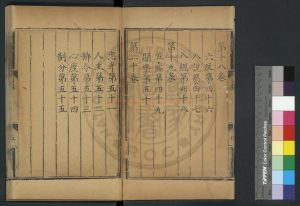 第十八卷
六反第四十六
八說第四十七
八經第四十八
第十九卷
五蠹第四十九
顯學第五十
第二十卷
忠孝第五十一
人主第五十二
飭令第五十三
心度第五十四
制分第五十五